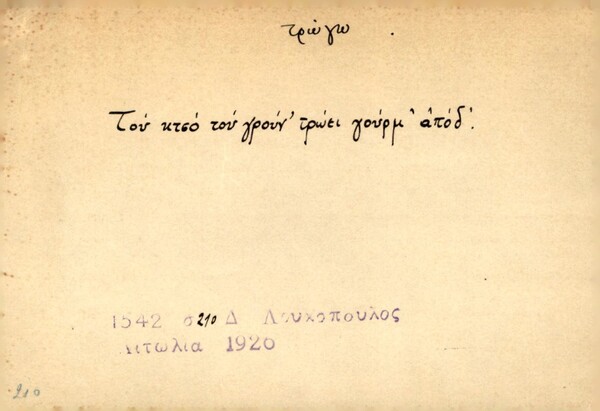 τρώγω .
Τού κτσό τού γρούν' τρώει γούρμ' ἀπόδ'.
1542 σ 210 Δ Λουκοπουλος
Αιτωλια 1920
210